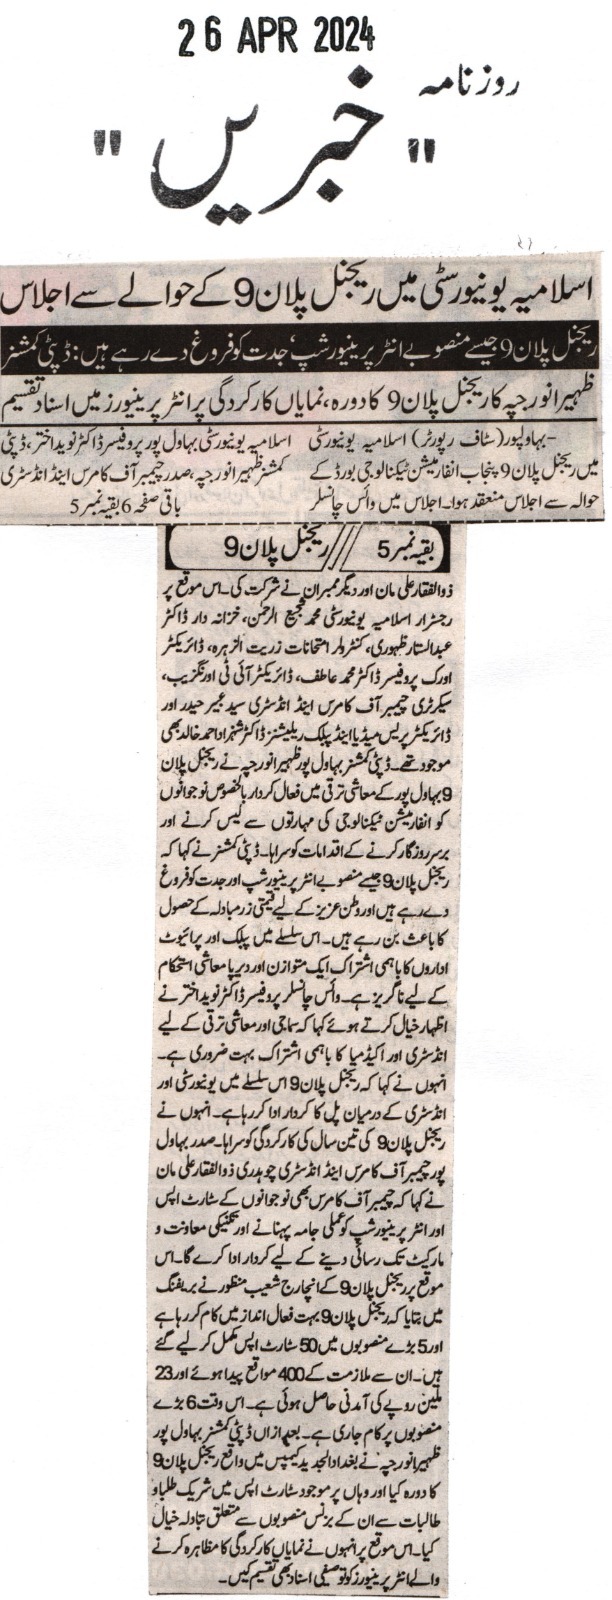 26 APR 2024
روزنامہ
"خبریں"
اسلامیہ یونیورسٹی میں ریجنل پلان 9 کے حوالے سے اجلاس
ریجنل پلان 9 جیسے منصوبے انٹر پرینیورشپ، جدت کو فروغ دے رہے ہیں: ڈپٹی کمشنر
ظہیر انور جپہ کا ریجنل پلان 9 کا دورہ، نمایاں کارکردگی پر انٹر پرینیورز میں اسناد تقسیم
بہاولپور (سٹاف رپورٹر) اسلامیہ یونیورسٹی
میں ریجنل پلان 9 پنجاب انفارمیشن ٹیکنالوجی بورڈ کے
حوالہ سے اجلاس منعقد ہوا۔ اجلاس میں وائس چانسلر
اسلامیہ یونیورسٹی بہاول پور پروفیسر ڈاکٹر نوید اختر، ڈپٹی
کمشنر ظہیر انور جپہ، صدر چیمبر آف کامرس اینڈ انڈسٹری
باقی صفحہ 6 بقیہ نمبر 5
بقیہ نمبر 5 // ریجنل پلان 9
ذوالفقار علی مان اور دیگر ممبران نے شرکت کی۔ اس موقع پر
رجسٹرار اسلامیہ یونیورسٹی محمد شجیع الرحمن، خزانہ دار ڈاکٹر
عبدالستار ظہوری، کنٹرولر امتحانات زریت الزہرہ، ڈائریکٹر
اورک پروفیسر ڈاکٹر محمد عاطف، ڈائریکٹر آئی ٹی اورنگزیب،
سیکرٹری چیمبر آف کامرس اینڈ انڈسٹری سید عبیر حیدر اور
ڈائریکٹر پریس میڈیا اینڈ پبلک ریلیشنز ڈاکٹر شہزاد احمد خالد بھی
موجود تھے۔ ڈپٹی کمشنر بہاول پور ظہیر انور جپہ نے ریجنل پلان
9 بہاول پور کے معاشی ترقی میں فعال کردار بالخصوص نوجوانوں
کو انفارمیشن ٹیکنالوجی کی مہارتوں سے لیس کرنے اور
برسر روزگار کرنے کے اقدامات کو سراہا۔ ڈپٹی کمشنر نے کہا کہ
ریجنل پلان 9 جیسے منصوبے انٹر پرینیورشپ اور جدت کو فروغ
دے رہے ہیں اور وطن عزیز کے لیے قیمتی زرمبادلہ کے حصول
کا باعث بن رہے ہیں۔ اس سلسلے میں پبلک اور پرائیوٹ
اداروں کا باہمی اشتراک ایک متوازن اور دیرپا معاشی استحکام
کے لیے ناگزیر ہے۔ وائس چانسلر پروفیسر ڈاکٹر نوید اختر نے
اظہار خیال کرتے ہوئے کہا کہ سماجی اور معاشی ترقی کے لیے
انڈسٹری اور اکیڈمیا کا باہمی اشتراک بہت ضروری ہے۔
انہوں نے کہا کہ ریجنل پلان 9 اس سلسلے میں یونیورسٹی اور
انڈسٹری کے درمیان پل کا کردار ادا کر رہا ہے۔ انہوں نے
ریجنل پلان 9 کی تین سال کی کارکردگی کو سراہا۔ صدر بہاول
پور چیمبر آف کامرس اینڈ انڈسٹری چوہدری ذوالفقار علی مان
نے کہا کہ چیمبر آف کامرس بھی نوجوانوں کے سٹارٹ اپس
اور انٹر پرینیورشپ کو عملی جامہ پہنانے اور تکنیکی معاونت و
مارکیٹ تک رسائی دینے کے لیے کردار ادا کرے گا۔ اس
موقع پر ریجنل پلان 9 کے انچارج شعیب منظور نے بریفنگ
میں بتایا کہ ریجنل پلان 9 بہت فعال انداز میں کام کر رہا ہے
اور 5 بڑے منصوبوں میں 50 سٹارٹ اپس مکمل کر لیے گئے
ہیں۔ ان سے ملازمت کے 400 مواقع پیدا ہوئے اور 23
ملین روپے کی آمدنی حاصل ہوئی ہے۔ اس وقت 6 بڑے
منصوبوں پر کام جاری ہے۔ بعد ازاں ڈپٹی کمشنر بہاول پور
ظہیر انور جپہ نے بغداد الجدید کیمپس میں واقع ریجنل پلان 9
کا دورہ کیا اور وہاں پر موجود سٹارٹ اپس میں شریک طلباو
طالبات سے ان کے بزنس منصوبوں سے متعلق تبادلہ خیال
کیا۔ اس موقع پر انہوں نے نمایاں کارکردگی کا مظاہرہ کرنے
والے انٹر پرینیورز کو توصیفی اسناد بھی تقسیم کیں۔